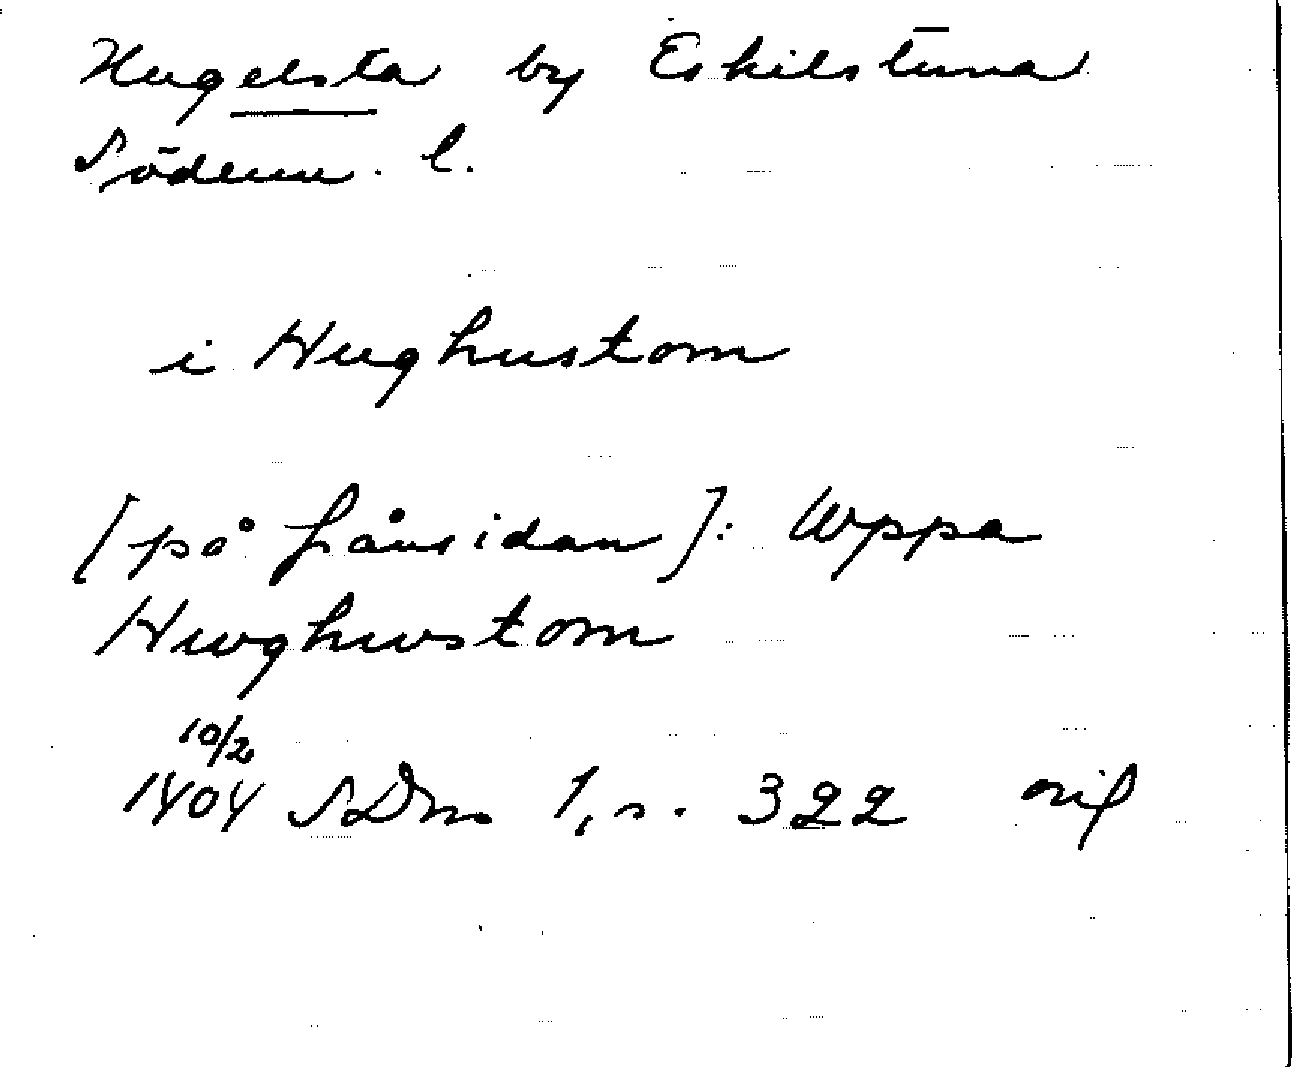 Hugelsta by Eskilstuna
Söderm. l.
i Hughustom
[på frånsidan]: Wppa
Hwghwstom
10/2
1404 SDns 1, s. 322 orig